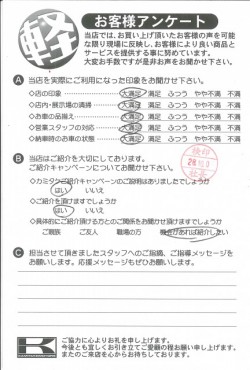 軽
お客様アンケート
当店では、お買い上げ頂いたお客様の声を可能
な限り現場に反映し、お客様により良い商品と
サービスを提供する事に努めています。
大変お手数ですが是非お声をお聞かせ下さい。
A 当店を実際にご利用になった印象をお聞かせ下さい。
◇店の印象 大満足 満足 ふつう やや不満 不満
◇店内・展示場の清掃 大満足 満足 ふつう やや不満 不満
◇お車の品揃え 大満足 満足 ふつう やや不満 不満
◇営業スタッフの対応 大満足 満足 ふつう やや不満 不満
◇納車時のお車の状態 大満足 満足 ふつう やや不満 不満
B 当店はご紹介を大切にしております。
ご紹介キャンペーンについてお聞かせ下さい。
◇カミタンご紹介キャンペーンのご説明はありましたでしょうか
はい いいえ
◇ご紹介を頂けますでしょうか
はい いいえ
◇具体的にご紹介頂ける方とのご関係をお聞かせ頂けますでしょうか
ご家族 ご友人 職場の方 機会があれば紹介したい
C 担当させて頂きましたスタッフへのご指摘、ご指導メッセージを
お願いします。応援メッセージもぜひお願いします。
K
ご協力に心よりお礼を申し上げます。
今後とも宜しくお引き立てご愛顧の程お願い申し上げます。
またのご来店を心からお待ちしております。